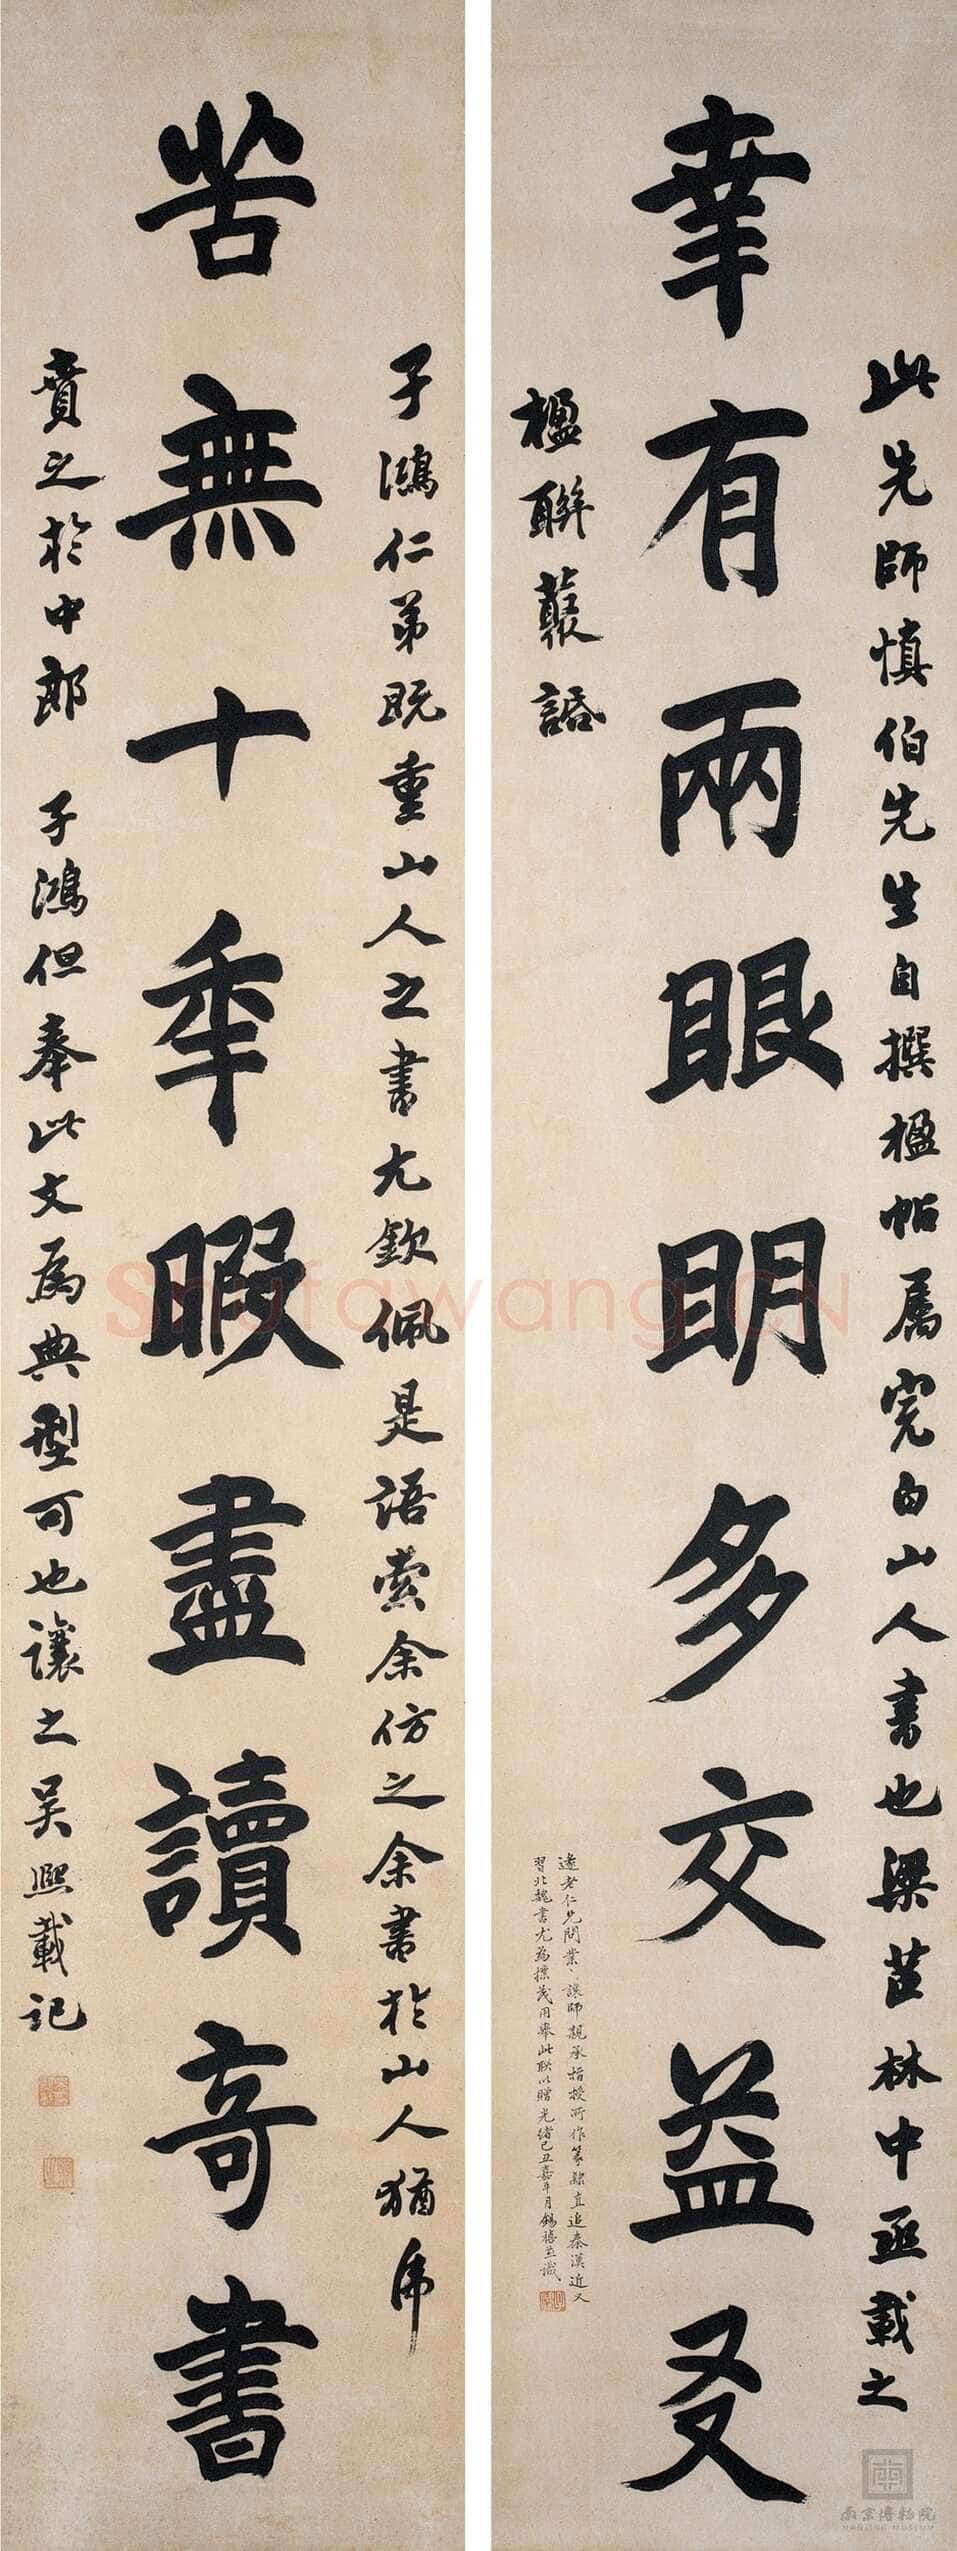 幸有兩眼明多交益友
此先師慎伯先生自撰楹帖属完白山人書也梁茝林中丞載之
楹聯叢話
遠老仁兄問業讓師親承指授所作篆隸直追秦漢近又
習北魏書尤為樸茂用舉此聯以贈光緒己丑嘉平月錫禧並識
苦無十年暇盡讀奇書
子鴻仁弟既重山人之書尤欽佩是語索余仿之余書於山人猶虎
賁之於中郎 子鴻但奉此文為典型可也讓之吳熙載記
Shufawang.CN
南京博物院
NANJING MUSEUM